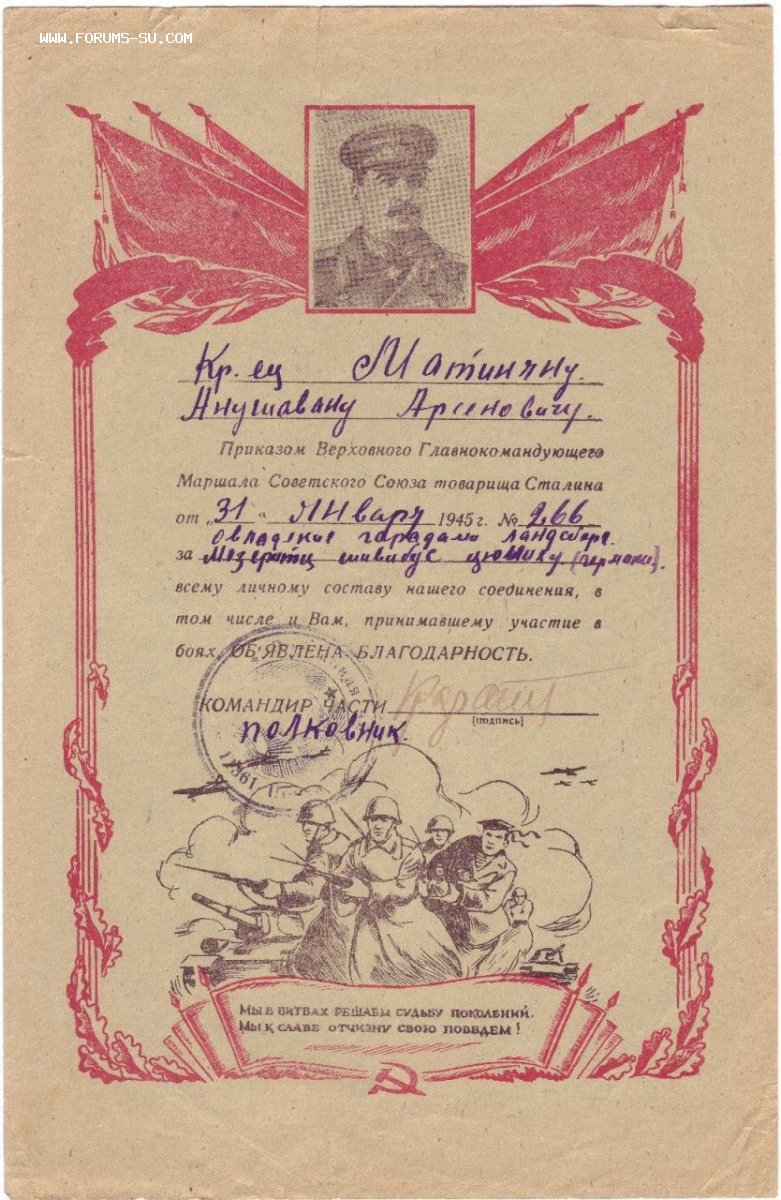 WWW.FORUMS-SU.COM
Кр. ец Матиняну.
Анушавану Арсеновичу.
Приказом Верховного Главнокомандующего
Маршала Советского Союза товарища Сталина
от „31“ Января 1945 г. № 266
овладение гарадами ландсберг.
за Мезеритц швибус цюлиху (германи).
всему личному составу нашего соединения, в
том числе и Вам, принимавшему участие в
боях, ОБ'ЯВЛЕНА БЛАГОДАРНОСТЬ.
КОМАНДИР ЧАСТИ
(подпись)
полковник.
МЫ В БИТВАХ РЕШАЕМ СУДЬБУ ПОКОЛЕНИЙ.
МЫ К СЛАВЕ ОТЧИЗНУ СВОЮ ПОВЕДЕМ!